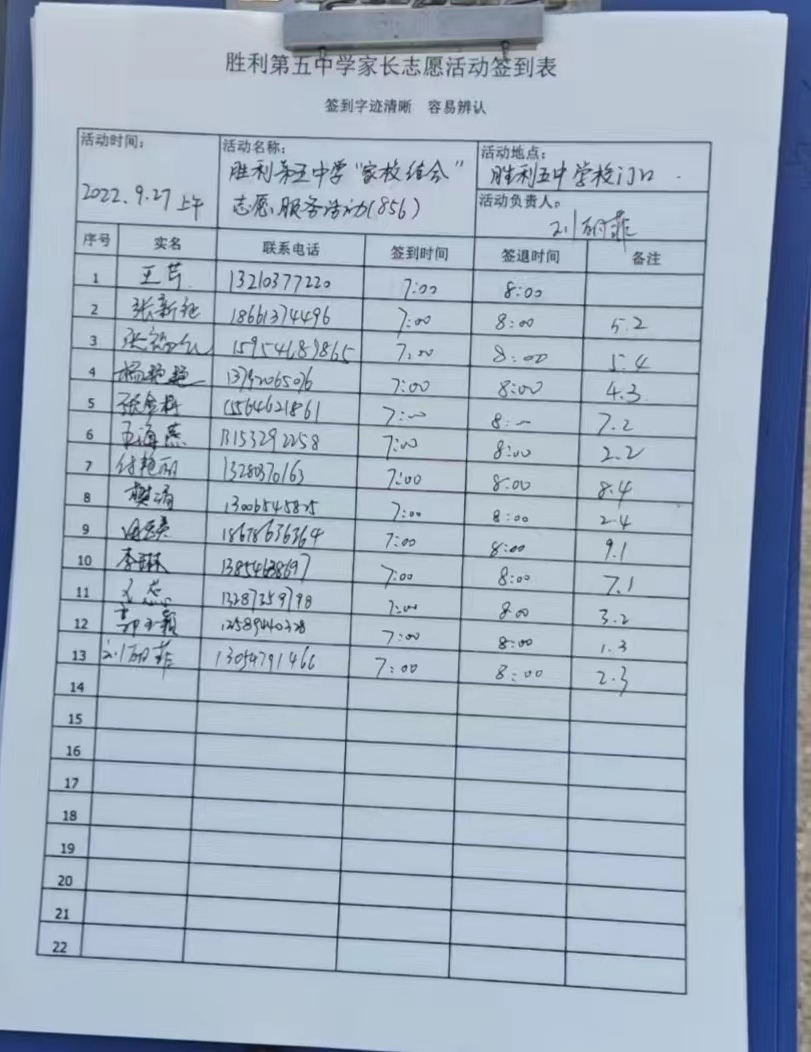 胜利第五中学家长志愿活动签到表
签到字迹清晰 容易辨认
活动时间: 2022.9.27上午
活动名称: 胜利第五中学“家校结合”
志愿服务活动(856)
活动地点: 胜利五中学校门口.
活动负责人: 刘丽菲
序号 实名 联系电话 签到时间 签退时间 备注
1 王芹 13210377220 7:00 8:00
2 张新征 18661374496 7:00 8:00 5.2
3 张 15954689865 7:00 8:00 5.4
4 杨艳艳 7:00 8:00 4.3
5 张金 15564621861 7:00 8:00 7.2
6 王海燕 7:00 8:00 2.2
7 付艳丽 7:00 8:00 8.4
8 樊 13006545825 7:00 8:00 2.4
9 18678636364 7:00 8:00 9.1
10 李琳 7:00 8:00 7.1
11 13287359798 7:00 8:00 3.2
12 郭玉颖 7:00 8:00 1.3
13 刘丽菲 13054791466 7:00 8:00 2.3
14
15
16
17
18
19
20
21
22